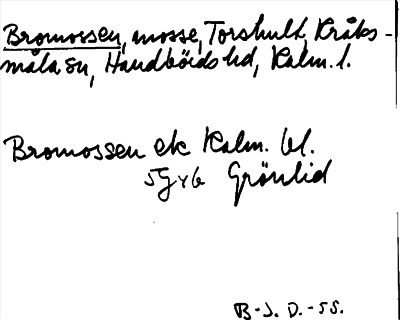 Bromossen, mosse, Torshult, Kråks-
måla sn, Handbörds hd, Kalm. l.
Bromossen ek Kalm. bl.
5G v6 Grönlid
B-J. D. -55.